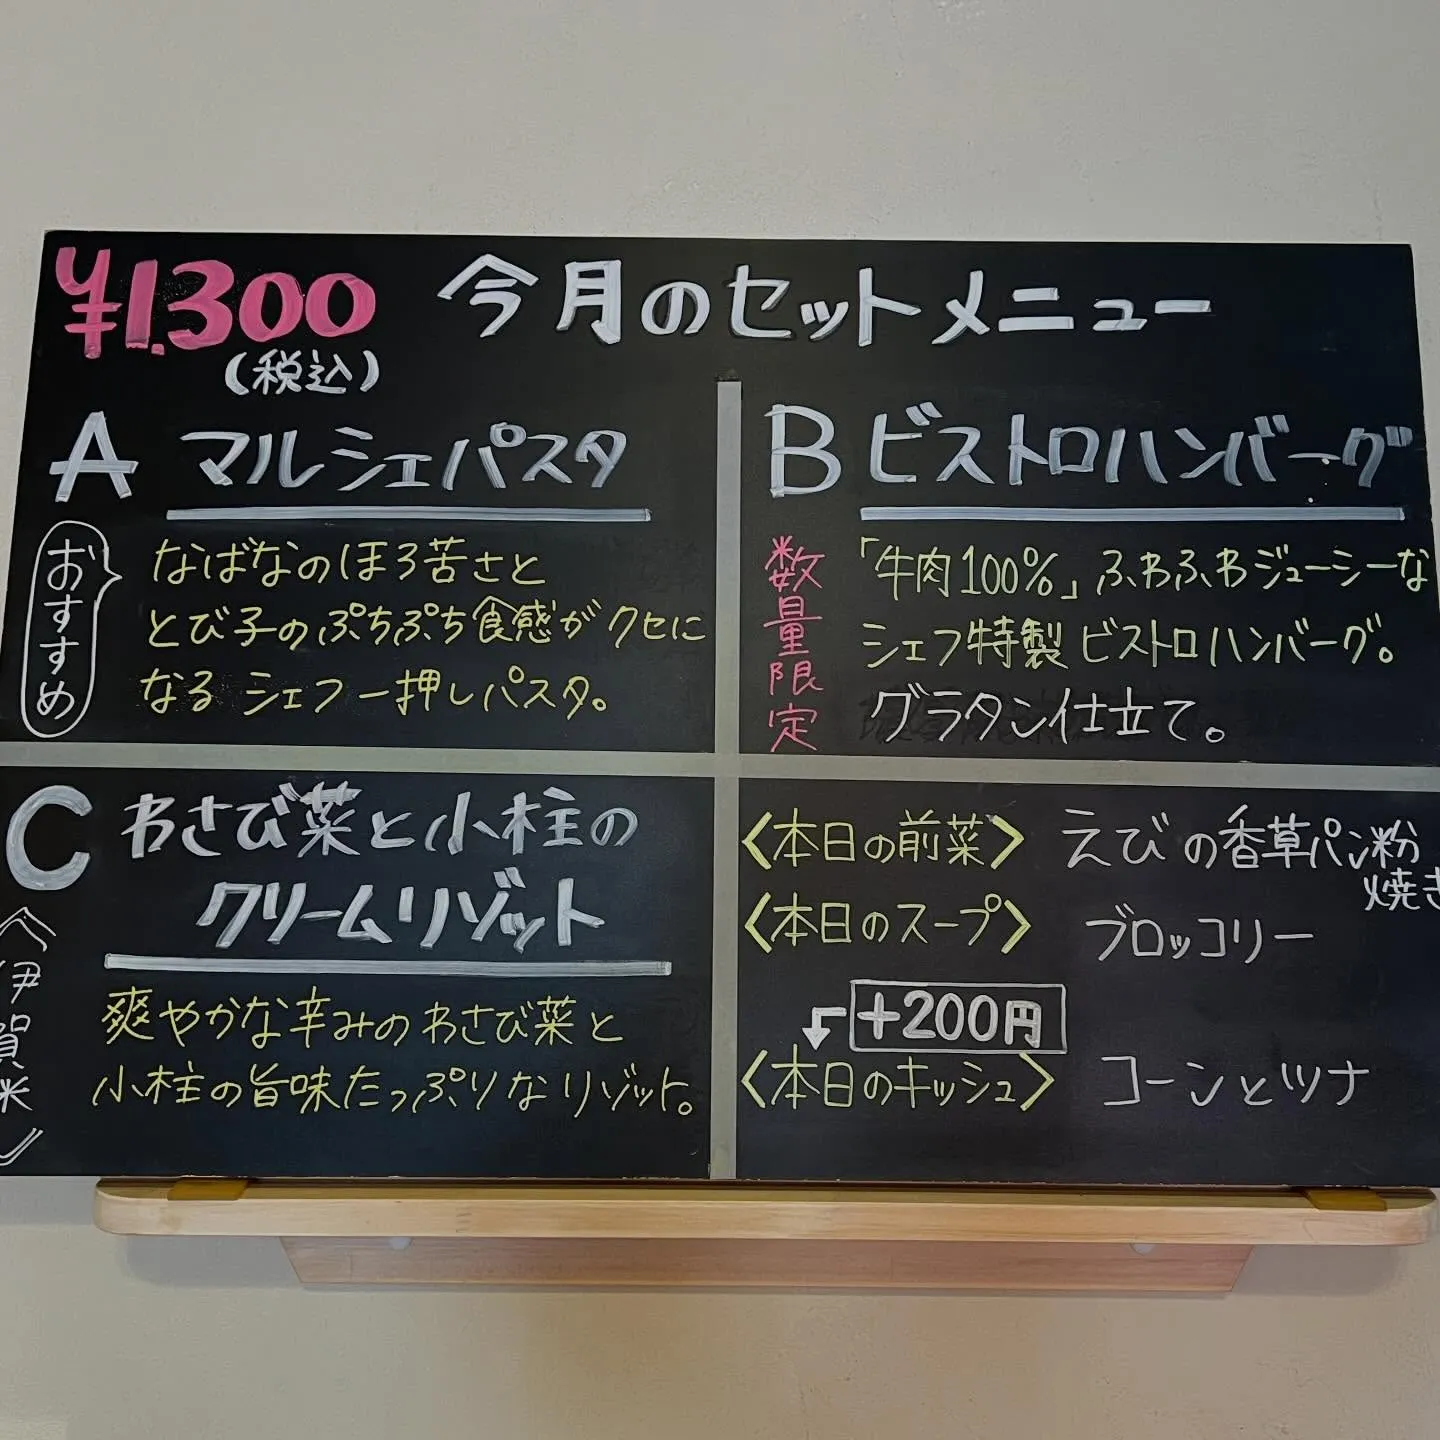 ¥1.300
(税込)
今月のセットメニュー
A マルシェパスタ
おすすめ
なばなのほろ苦さと
とび子のぷちぷち食感がクセに
なる シェフ一押しパスタ。
B ビストロハンバーグ
数量限定
「牛肉100%」ふわふわジューシーな
シェフ特製 ビストロハンバーグ。
グラタン仕立て。
C わさび菜と小柱の
クリームリゾット
《伊賀米》
爽やかな辛みのわさび菜と
小柱の旨味たっぷりなリゾット。
〈本日の前菜〉 えびの香草パン粉
焼き
〈本日のスープ〉 ブロッコリー
+200円
〈本日のキッシュ〉 コーンとツナ